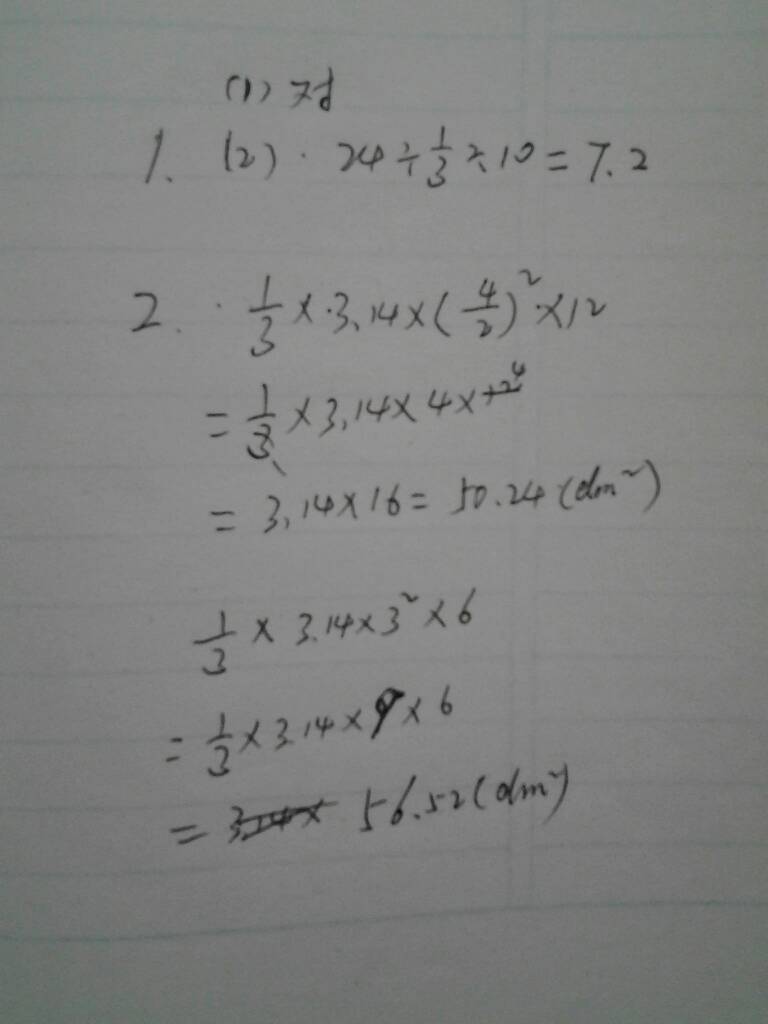 (1) 对
1. (2). 24÷1/3÷10=7.2
2. 1/3×3.14×(4/2)²×12
=1/3×3.14×4×12 4
=3.14×16=50.24(dm²)
1/3×3.14×3²×6
=1/3×3.14×9×6
=3.14× 56.52(dm²)